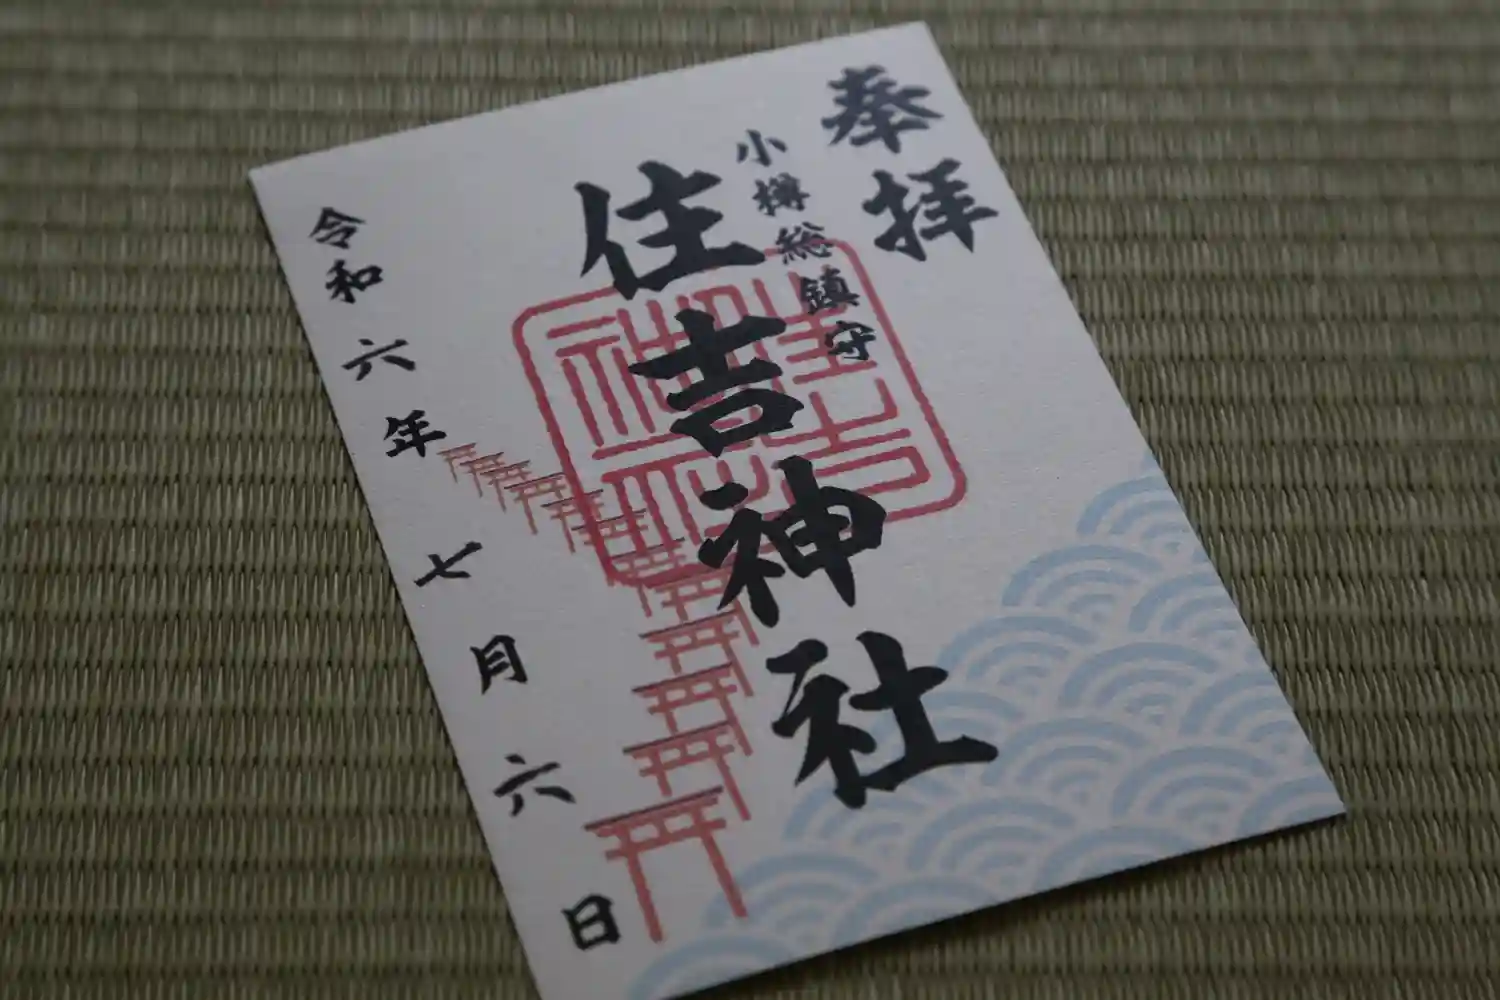 奉拝
小樽総鎮守
住吉神社
住吉神社
令和六年七月六日